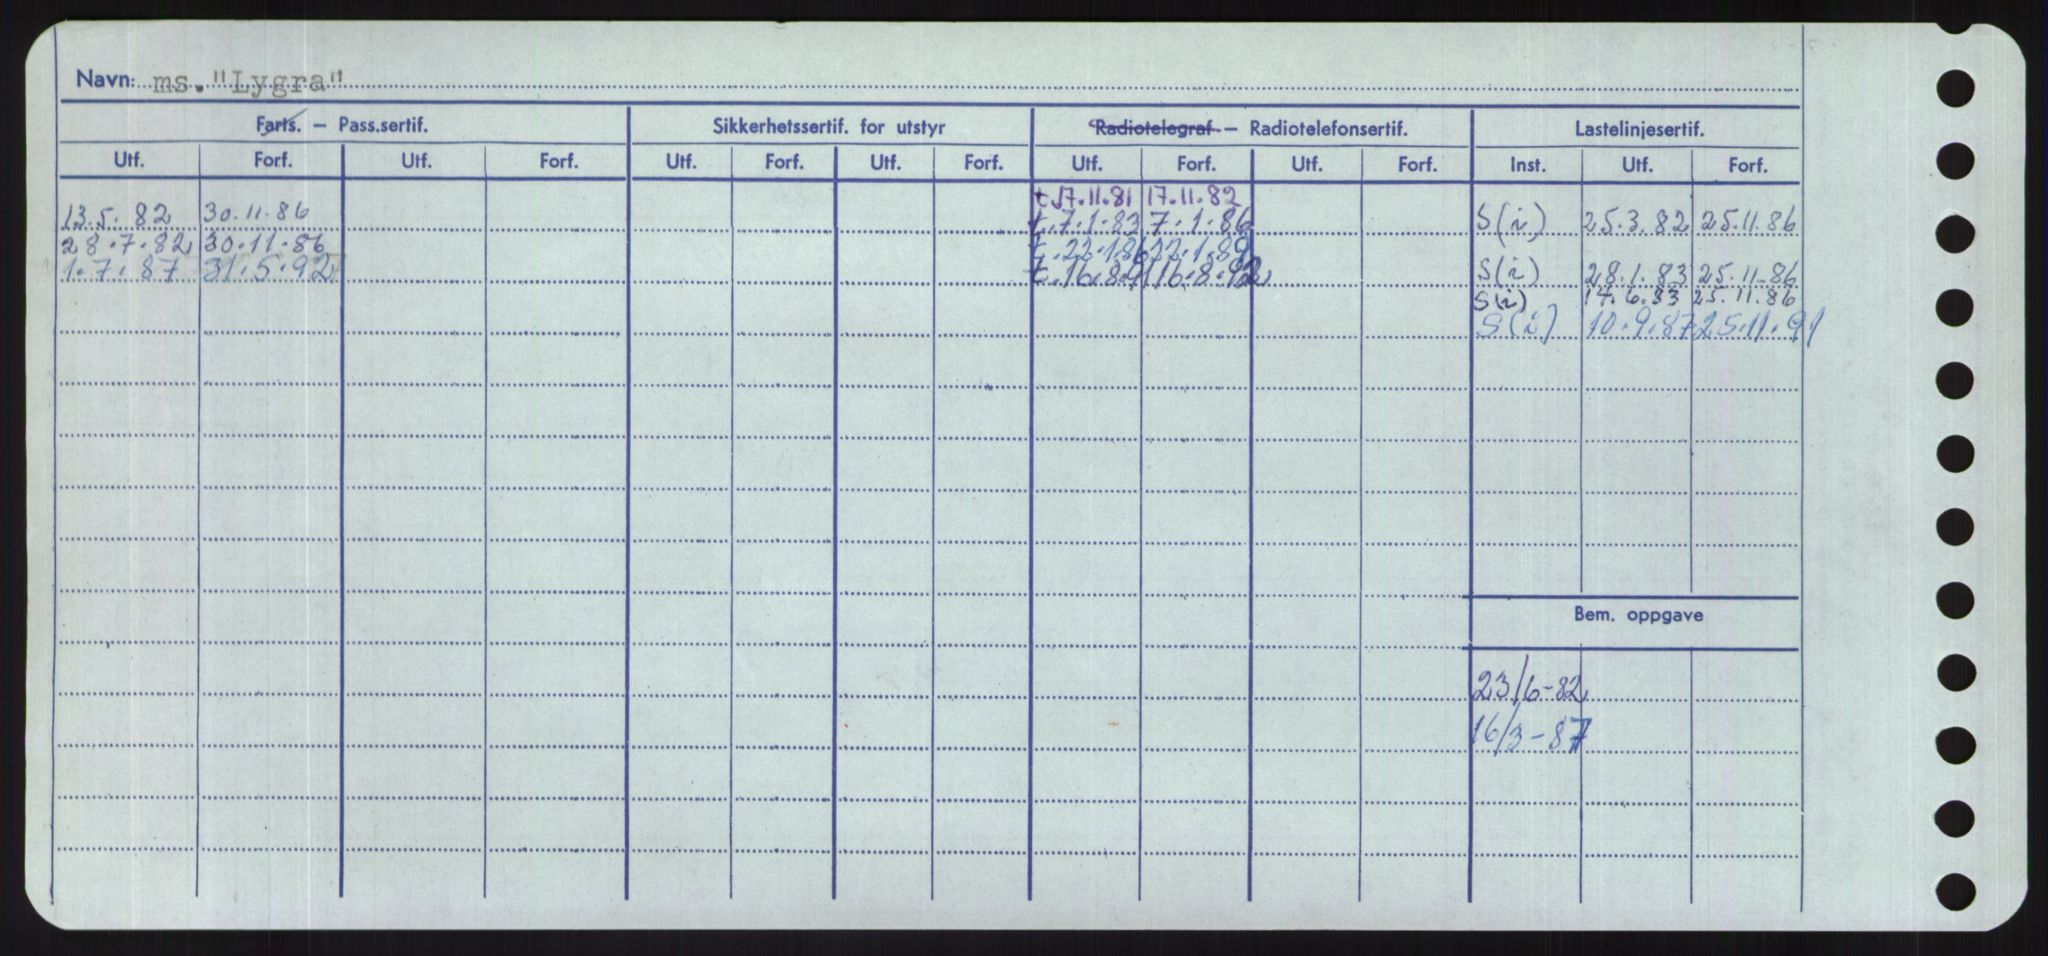 Navn: ms. "Lygra"
Farts. – Pass.sertif. Sikkerhetssertif. for utstyr Radiotelegraf – Radiotelefonsertif. Lastelinjesertif.
Utf. Forf. Utf. Forf. Utf. Forf. Utf. Forf. Utf. Forf. Utf. Forf. Inst. Utf. Forf.
t 17.11.81 17.11.82
13.5.82 30.11.86 t.7.1.83 7.1.86 S(i) 25.3.82 25.11.86
28.7.82 30.11.86 t.22.1.86 22.1.89
1.7.87 31.5.92 t.16.8.91 16.8.92 S(i) 28.1.83 25.11.86
S(i) 17.6.83 25.11.86
S(i) 10.9.87 25.11.91
Bem. oppgave
23/6-82
16/3-87